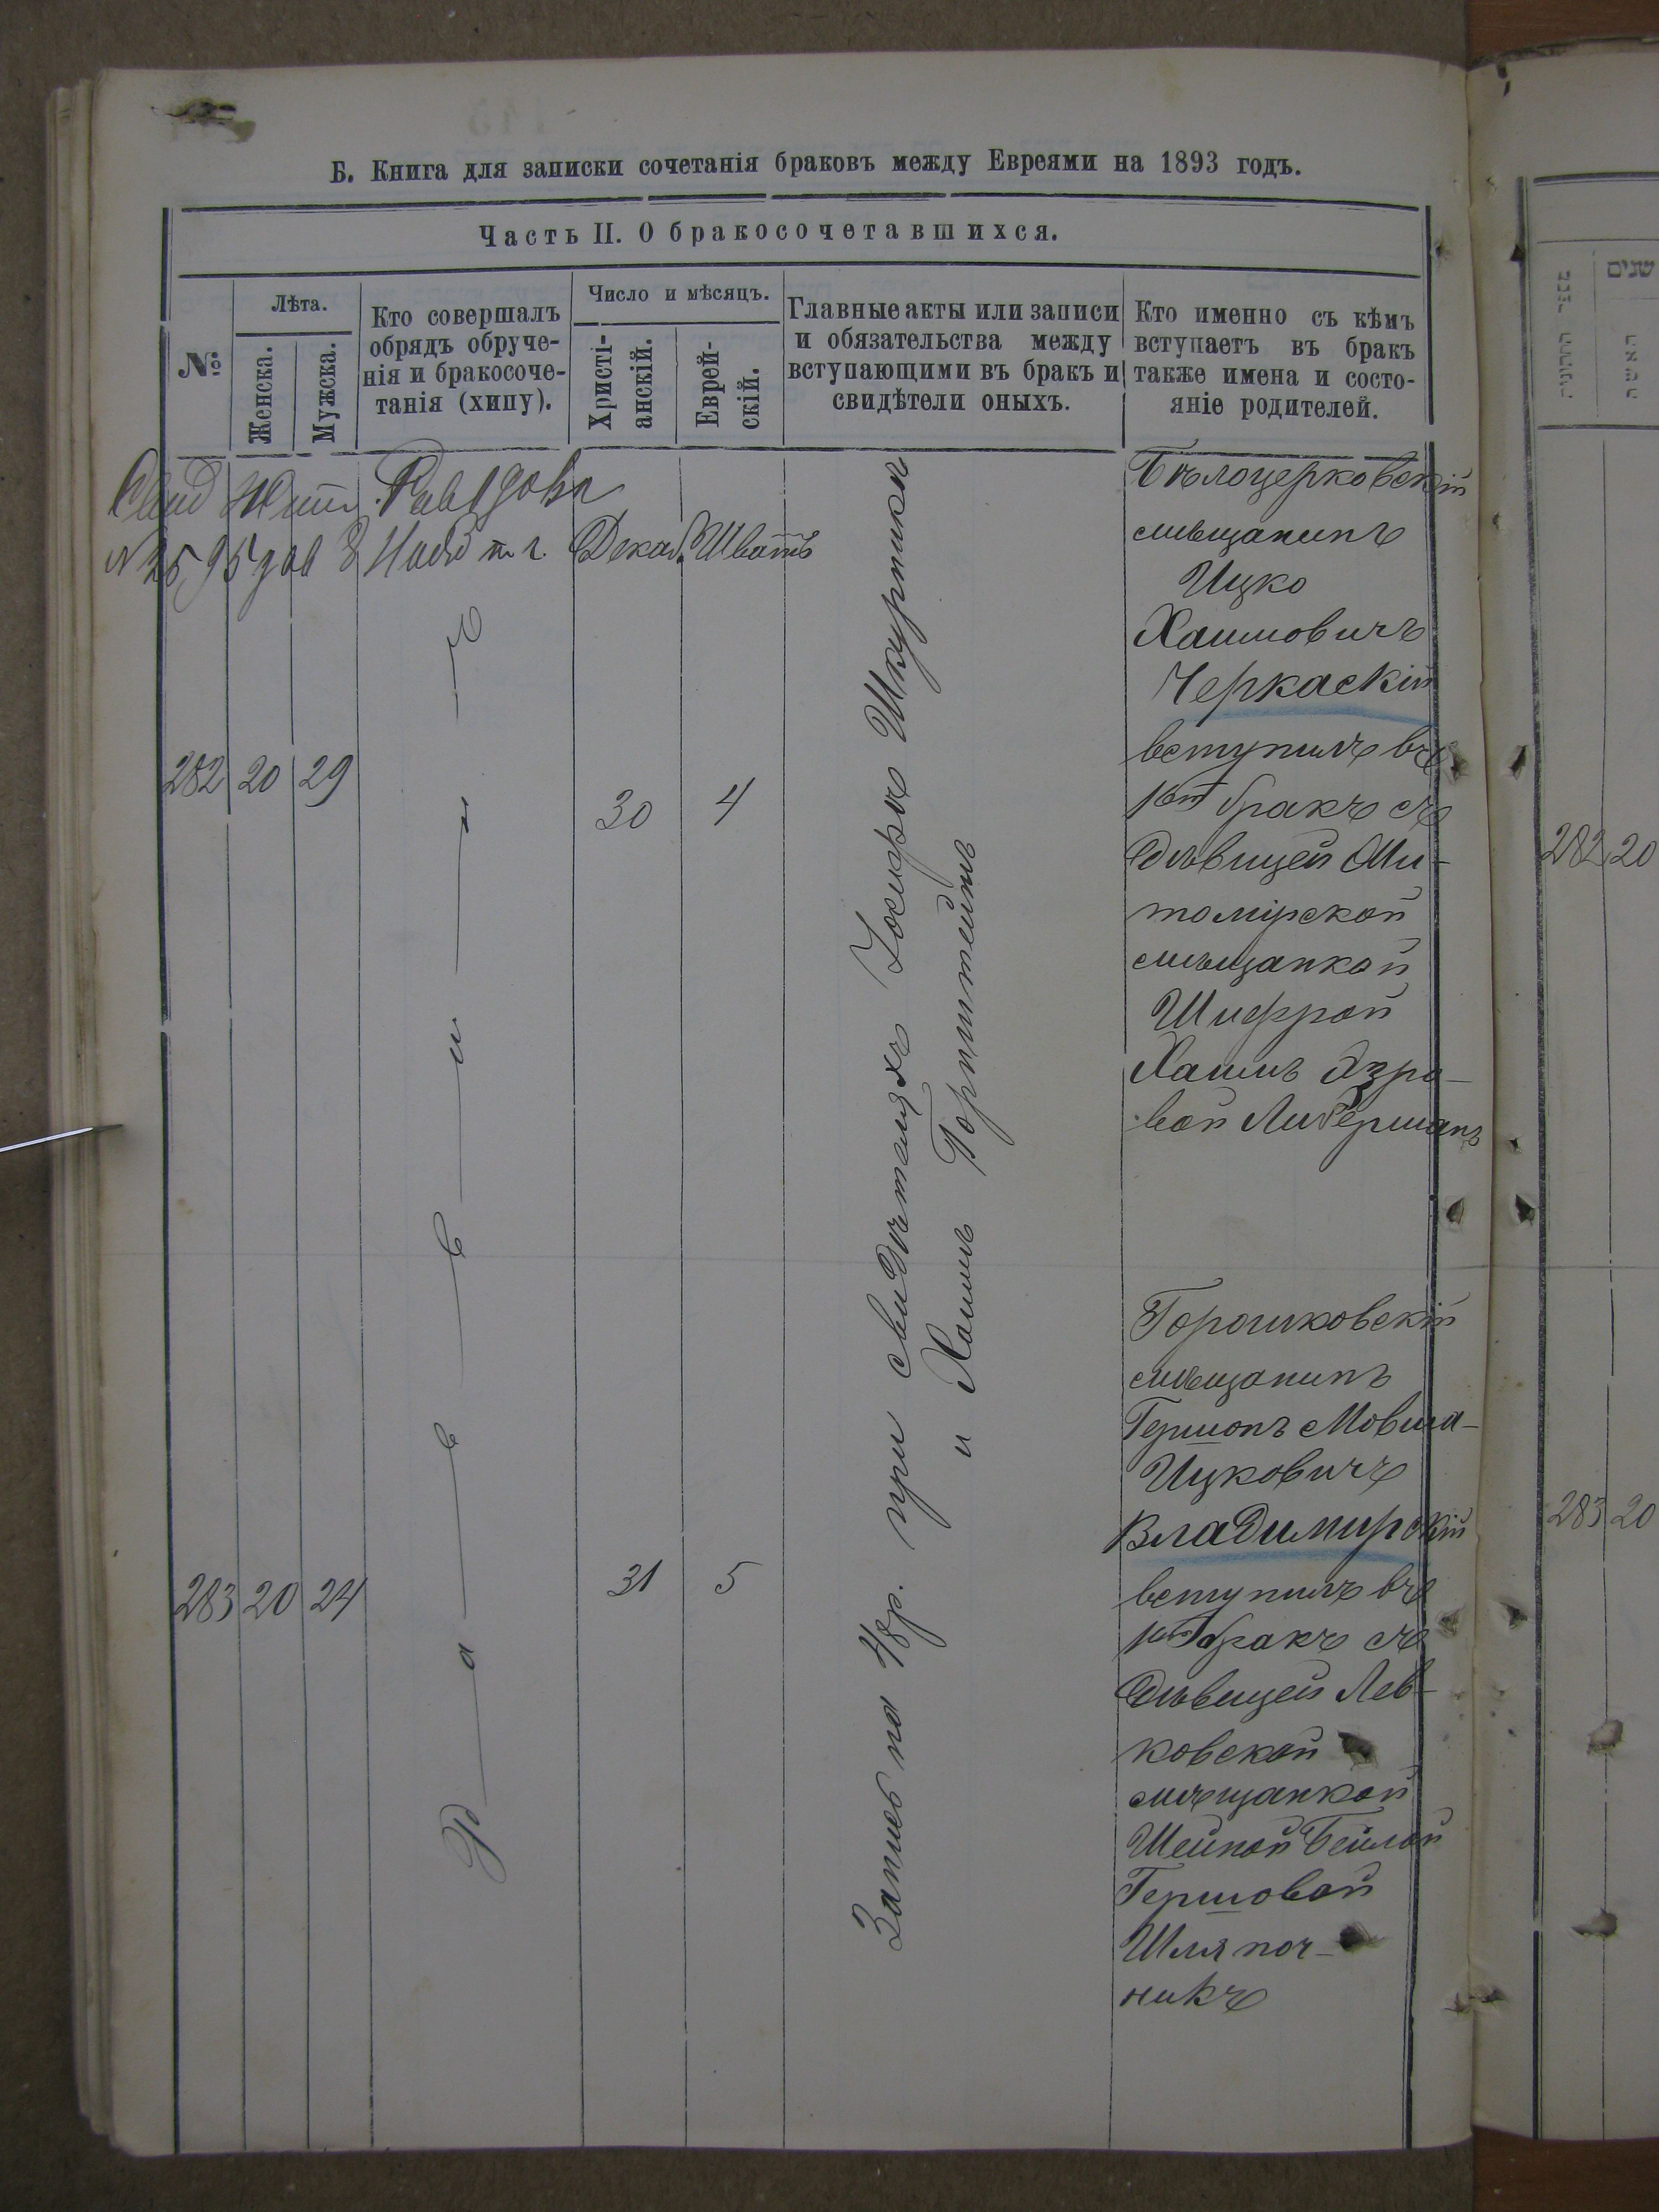 Б. Книга для записки сочетанія браковъ между Евреями на 1893 годъ.
Часть II. О бракосочетавшихся.
№
Лѣта.
Женска.
Мужска.
Кто совершалъ
обрядъ обруче-
нія и бракосоче-
танія (хипу).
Число и мѣсяцъ.
Христі-
анскій.
Еврей-
скій.
Главные акты или записи
и обязательства между
вступающими въ бракъ и
свидѣтели оныхъ.
Кто именно съ кѣмъ
вступаетъ въ бракъ
также имена и состо-
яніе родителей.
Свид Жит.
Декаб. Шватъ
Р а в в и н ъ
Записъ на 48р. при свидѣтеляхъ Іосифъ Шкурникъ
и Хаимъ Горнштейнъ
282 20 29
30 4
Бѣлоцерковскій
мѣщанинъ
Ицко
Хаимовичъ
Черкаскій
вступилъ въ
1ый бракъ съ
дѣвицей Жи-
томірской
мѣщанкой
Шифрой
Хаимъ Азро-
вой Либерманъ
283 20 24
31 5
Горошковскій
мѣщанинъ
Гершонъ Мовша-
Ицковичъ
Владимирскій
вступилъ въ
1ый бракъ съ
дѣвицей Лев-
ковской
мѣщанкой
Шейной Бейлой
Гершовой
Шляпоч-
никъ
שנים
האשה
מספר החתונות
282 20
283 20